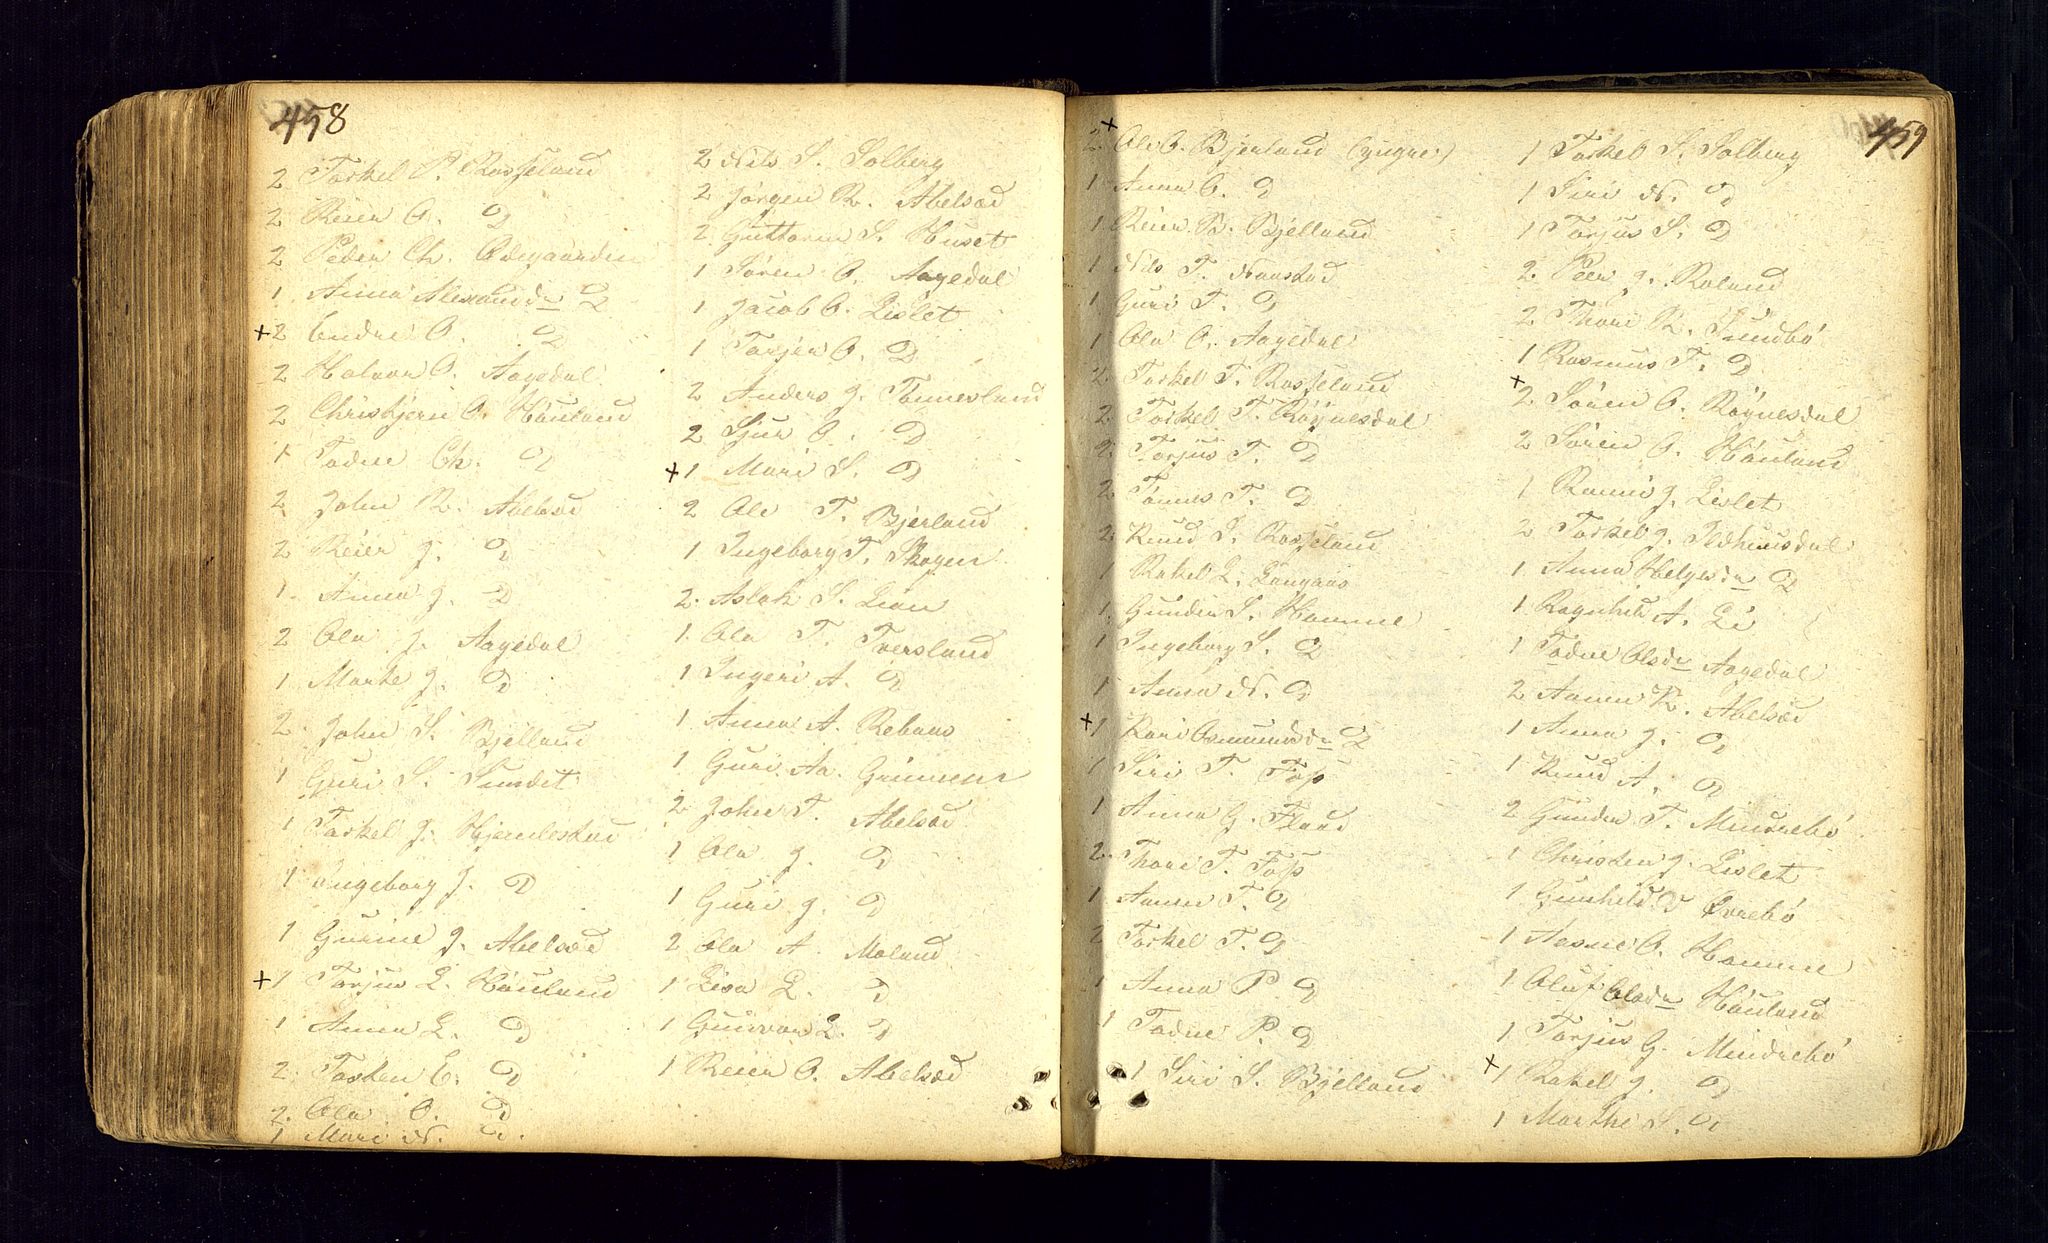 458
2 Torkel P. Rosseland
2 Reier O. D
2 Peder Ch. Ødegaarden
1 Anna Alexandr D
+2 Endre O. D
2 Halvor O. Aagedal
2 Christjern O. Hauland
1 Todne Ch. D
2 John R. Abelsæd
2 Reier J. D
1. Anna J. D
2 Ola J. Aagedal
1 Marte J. D
2. John S. Bjelland
1 Guri S. Sundet
1 Torkel J. Hjemlestad
1 Ingeborg J. D
1 Gurine J. Abelsæd
+1 Torjus L. Hauland
1 Anna L. D
2. Torken E. D
2. Ola O. D
1 Mari N. D.
2 Nils S. Solberg
2 Jørgen R. Abelsæd
2. Guttorm S. Huset
1 Søren O. Aagedal
1 Jacob O. Lislet
1 Torjer O. D
2 Anders J. Tønnesland
2 Sjur O. D
+1 Mari S. D
2 Ole T. Bjerland
1 Ingeborg T. Skogen
2. Aslak S. Lian
1. Ola T. Tversland
1 Ingeri A. D
1 Anna A. Rebaas
1 Guri Aa. Grunnens
2. John T. Abelsæd
1 Ola J. D
1 Guri J. D
2 Ola A. Moland
1 Lisa L. D
1 Gunvor L. D
1 Reier O. Abelsæd
459
+
2. Ole O. Bjerland (yngre)
1 Anna O. D
1 Reier B. Bjelland
1 Nils T. Naastad
1 Guri T. D
1 Ola O. Aagedal
2. Torkel T. Rosseland
2. Torkel T. Røynesdal
2. Torjus T. D
2 Tønnes T. D
2. Knud S. Rosseland
1 Rakel L. Langaas
1. Gunder S. Homme
1 Ingeborg S. D
1 Anna N. D
+1 Kari Osmundsdr D
1 Siri T. Foss
1 Anna G. Flaad
2. Thore T. Foss
1 Aanen T. D
2 Torkel T. D
1 Anna P. D
1 Todne P. D
1 Siri S. Bjelland
1 Torkel S. Solberg
1 Siri N. D
1 Torjus S. D
2. Peer J. Roland
2 Thore K. Sundbø
1 Rasmus T. D
+2 Søren O. Røynesdal
2 Søren O. Hauland
1 Rannei J. Lislet
2 Torkel J. Ildhuusdal
1 Anna Helgesdr D
1 Ragnhild A. Li
1 Todne Olsdr Aagedal
2 Aanen K. Abelsæd
1 Anna J. D
1 Knud A. D
2 Gunder T. Mindrebø
1 Christen J. Lislet
1 Gunhild T Øvrebø
1 Aasne O. Homme
1 Oluf Olsdr Hauland
1 Torjus G. Mindrebø
+1 Rakel J. D
1 Marthe S. D